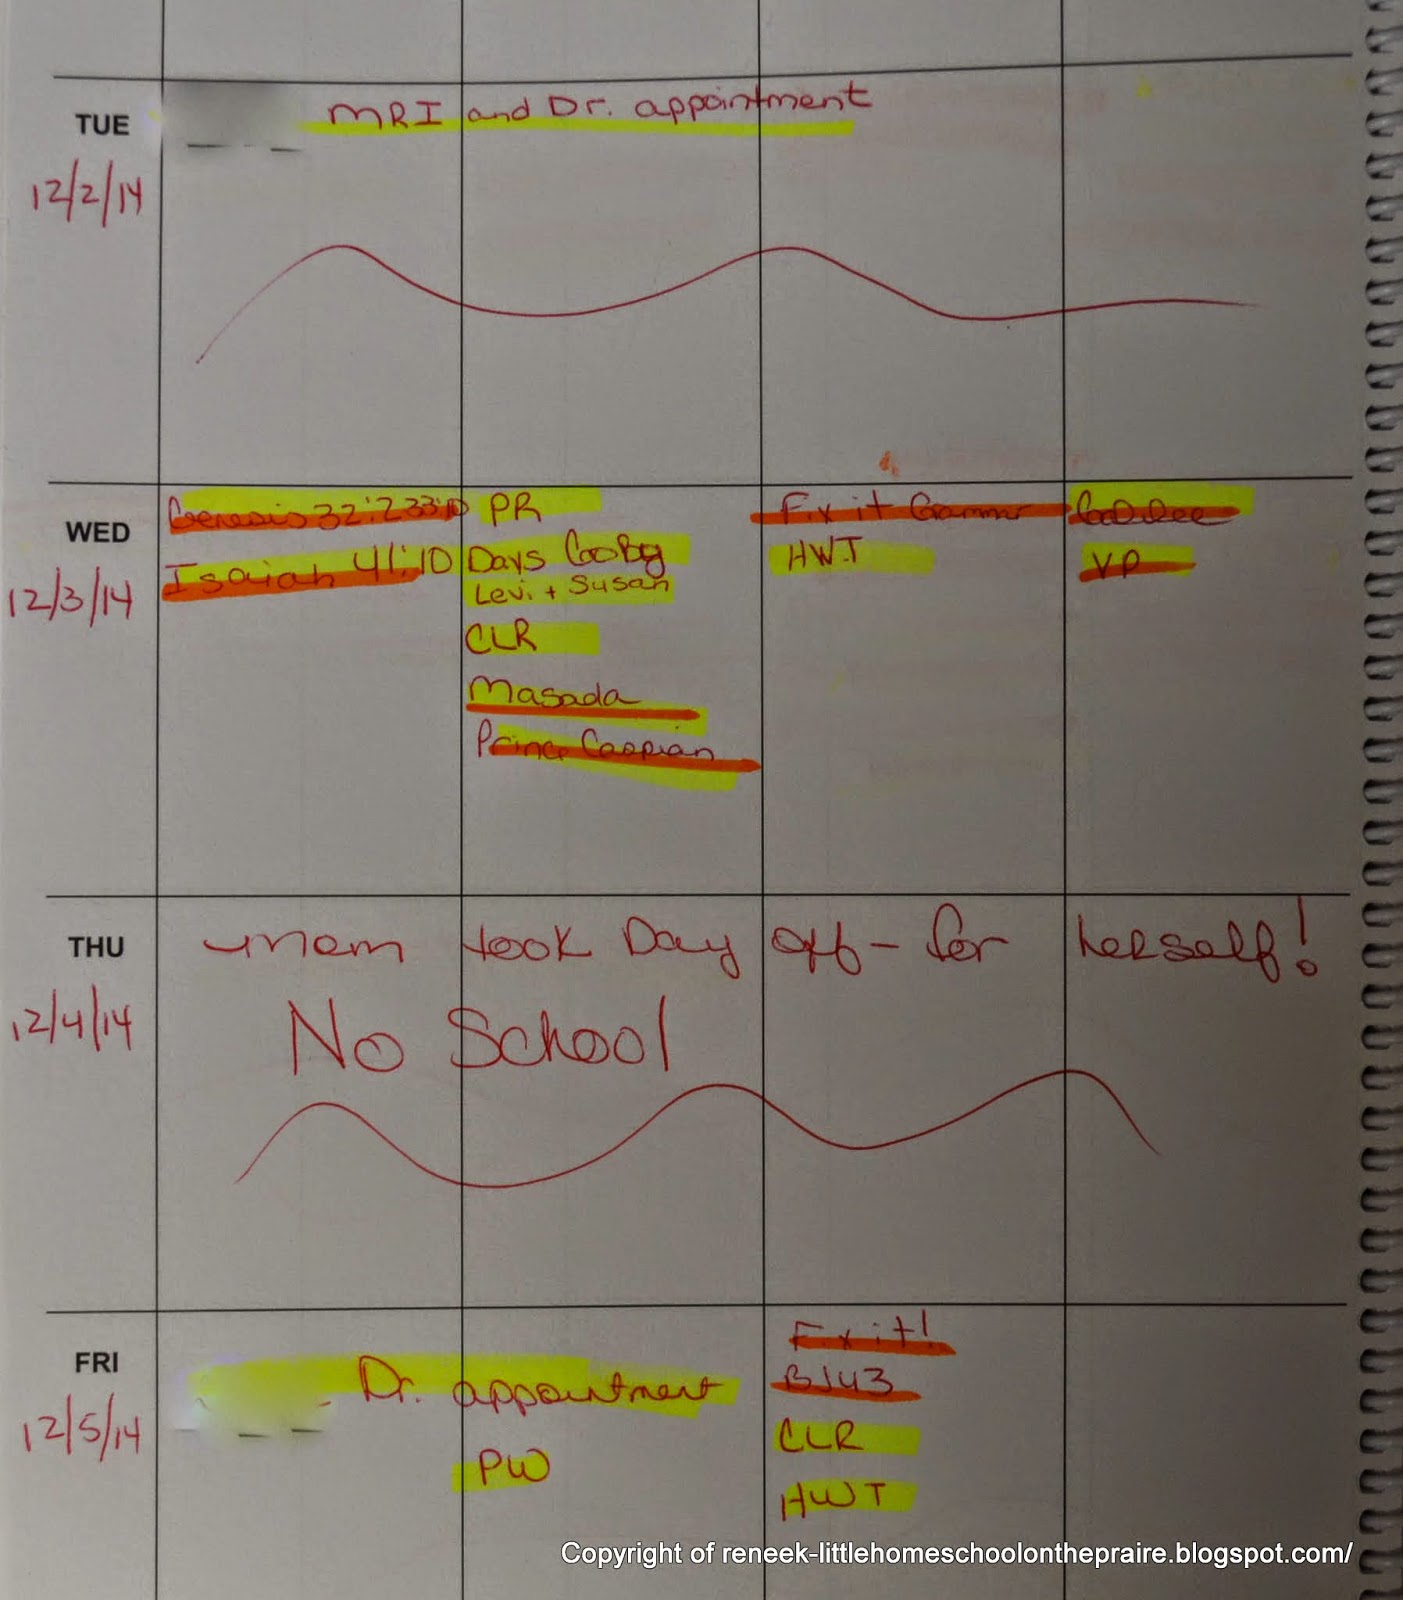 TUE
MRI and Dr. appointment
12/2/14
WED
12/3/14
Genesis 32:2 33:10
Isaiah 41:10
PR
Days Go By
Levi + Susan
CLR
Masada
Prince Caspian
Fix it Grammar
HWT
Galilee
VP
THU
12/4/14
mom took Day off - for herself!
No School
FRI
12/5/14
Dr. appointment
PW
Fix it!
BJU3
CLR
HWT
Copyright of reneek-littlehomeschoolonthepraire.blogspot.com/